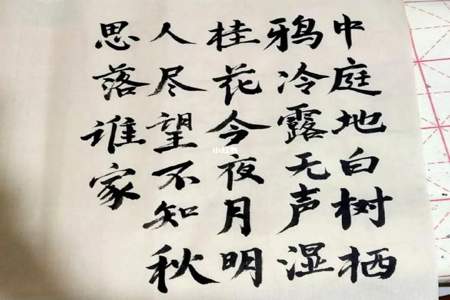 中庭地白树栖
鸦冷露无声湿
桂花今夜月明
人尽望不知秋
思落谁家